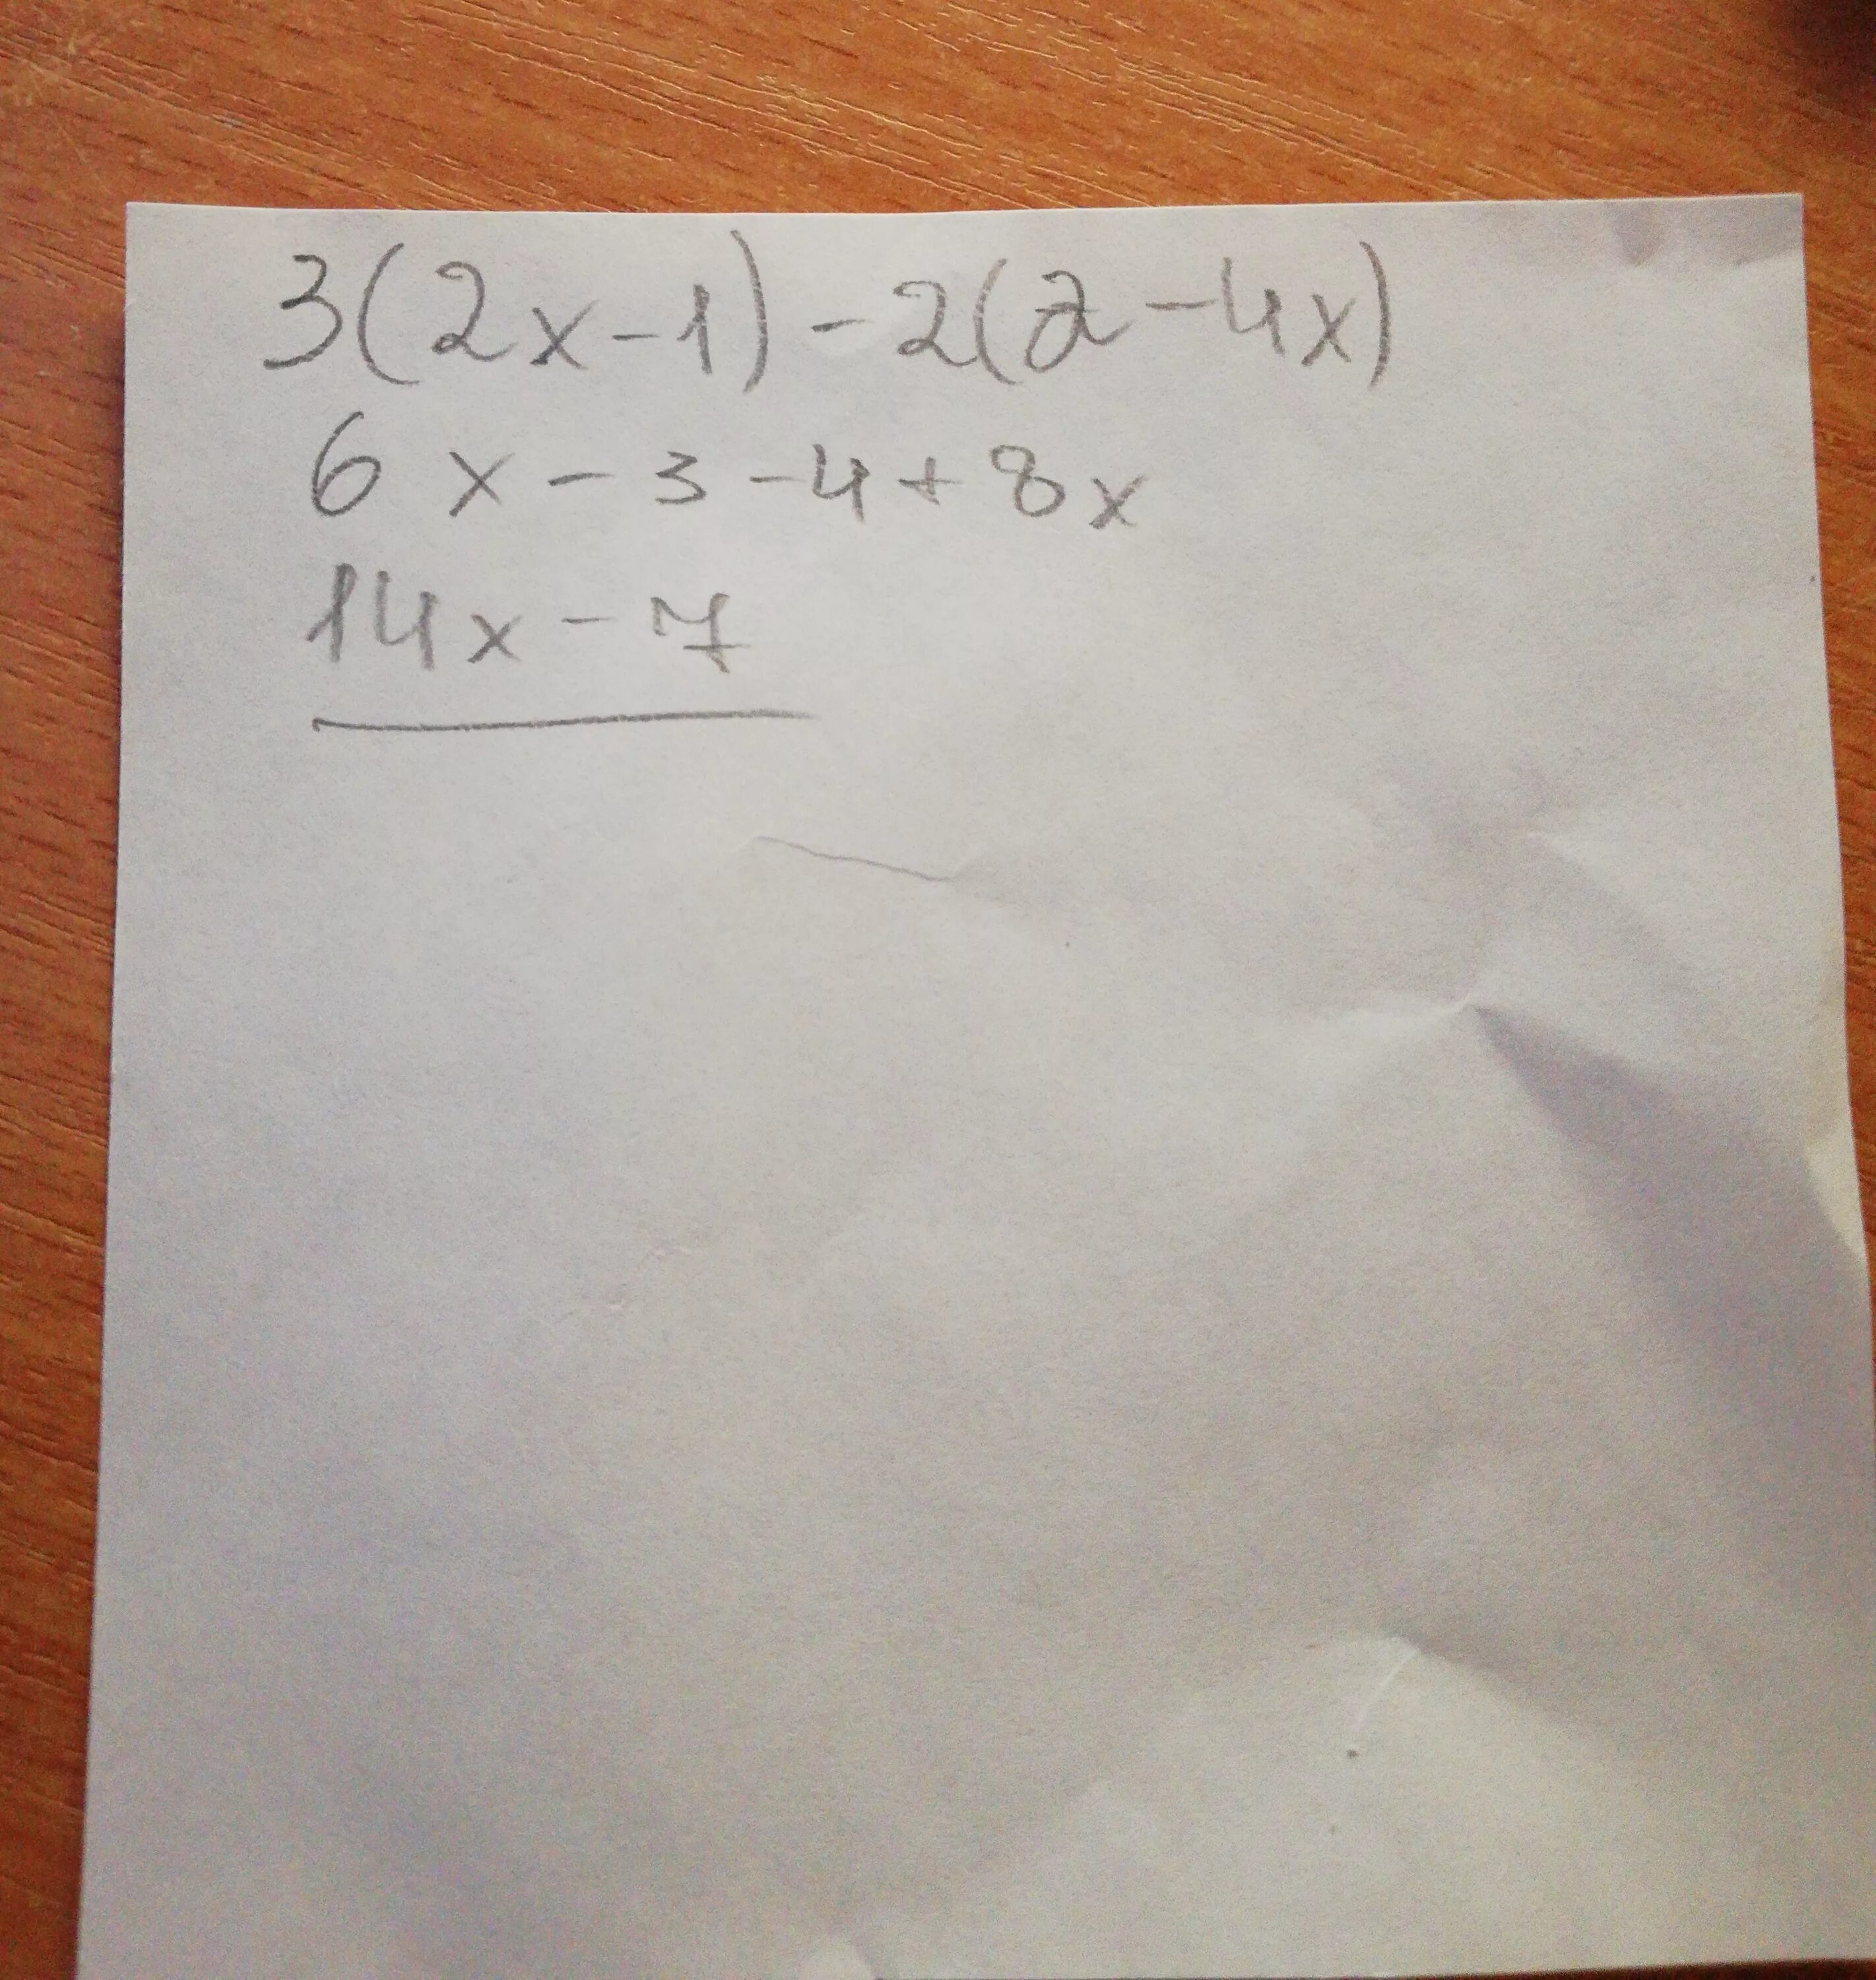 3(2x-1)-2(2-4x)
6x-3-4+8x
14x-7